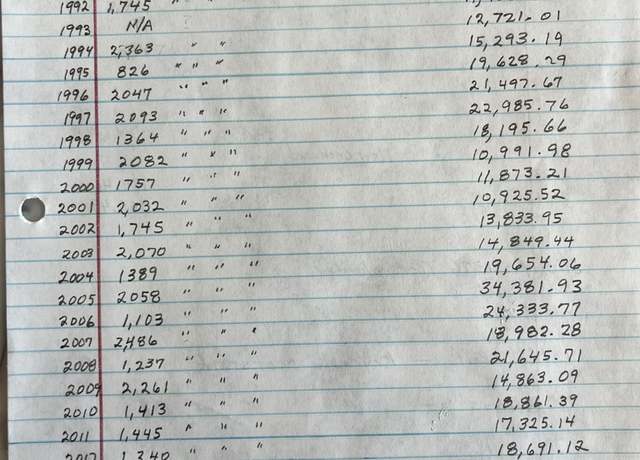 1992 1,745 " "
1993 N/A 12,721.01
1994 2,363 " " 15,293.19
1995 826 " " " 19,628.29
1996 2047 " " " 21,497.67
1997 2093 " " " 22,985.76
1998 1364 " " " 18,195.66
1999 2082 " " " 10,991.98
2000 1757 " " " 11,873.21
2001 2,032 " " " 10,925.52
2002 1,745 " " " 13,833.95
2003 2,070 " " " 14,849.44
2004 1389 " " " 19,654.06
2005 2058 " " " 34,381.93
2006 1,103 " " " 24,333.77
2007 2,486 " " " 18,982.28
2008 1,237 " " " 21,645.71
2009 2,261 " " " 14,863.09
2010 1,413 " " " 18,861.39
2011 1,445 " " " 17,325.14
2012 1,340 " " " 18,691.12